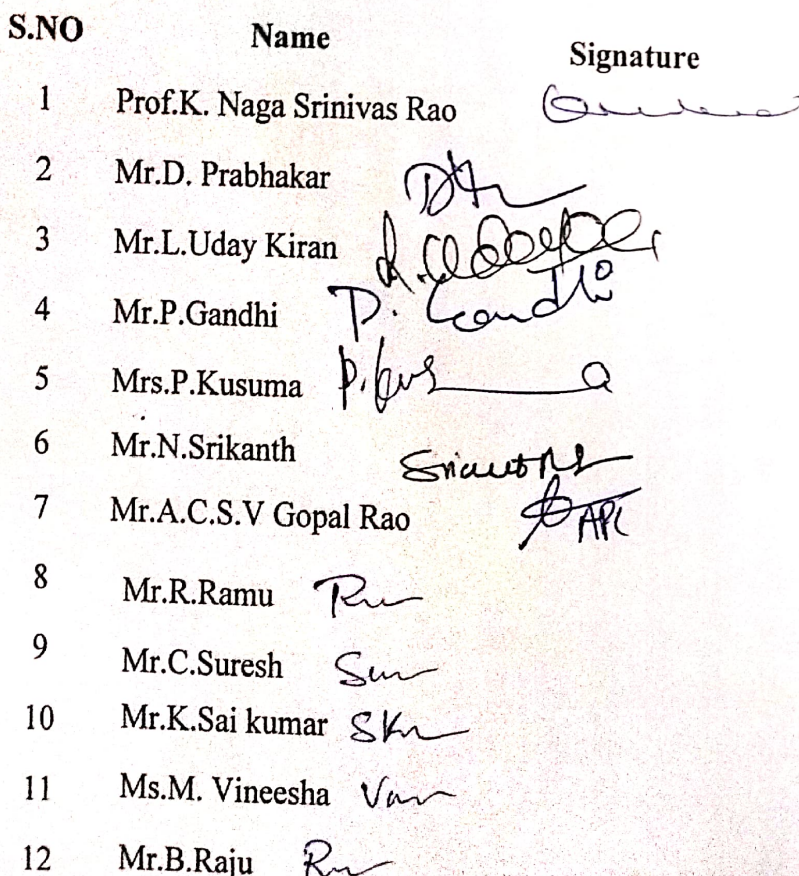 S.NO Name Signature
1 Prof.K. Naga Srinivas Rao
2 Mr.D. Prabhakar
3 Mr.L.Uday Kiran
4 Mr.P.Gandhi P. Gandhi
5 Mrs.P.Kusuma
6 Mr.N.Srikanth
7 Mr.A.C.S.V Gopal Rao
8 Mr.R.Ramu
9 Mr.C.Suresh
10 Mr.K.Sai kumar
11 Ms.M. Vineesha
12 Mr.B.Raju